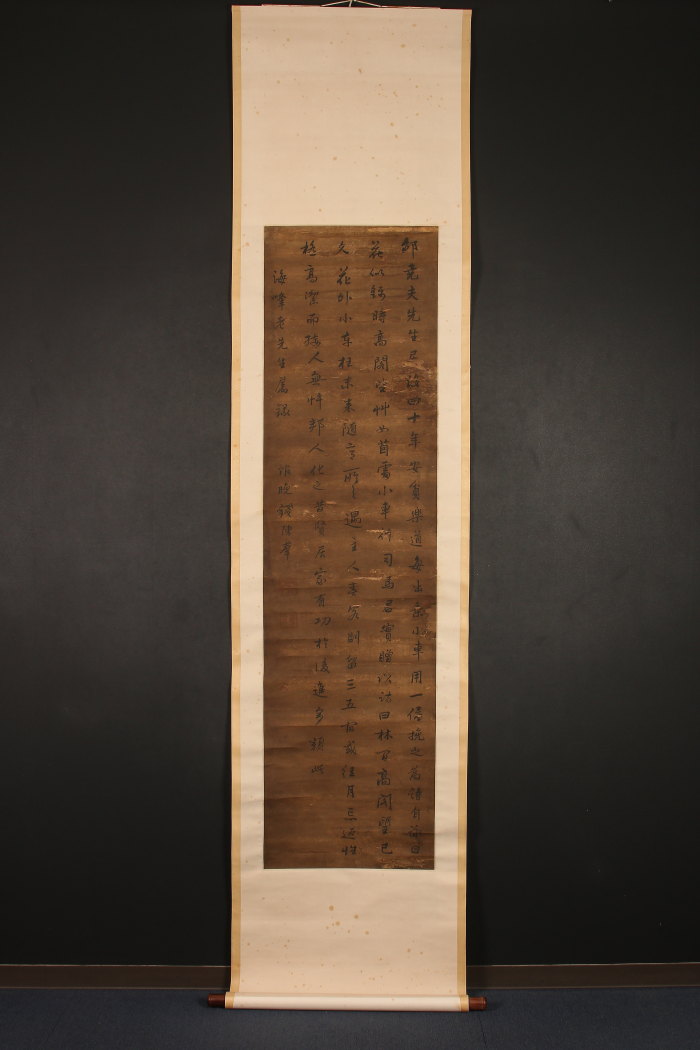 邵堯夫先生居洛四十年安貧樂道每出乘小車用一僮挽之為詩自詠曰
花似錦時高閣望艸如茵處小車行司馬君實贈以詩曰林間高閣望已
久花外小車猶未來隨意所之遇主人喜客則留三五宿或經月忘返性
極高潔而接人無忤邦人化之昔賢居家有功於後進多類此
海峰老先生屬 後晚錢陳羣